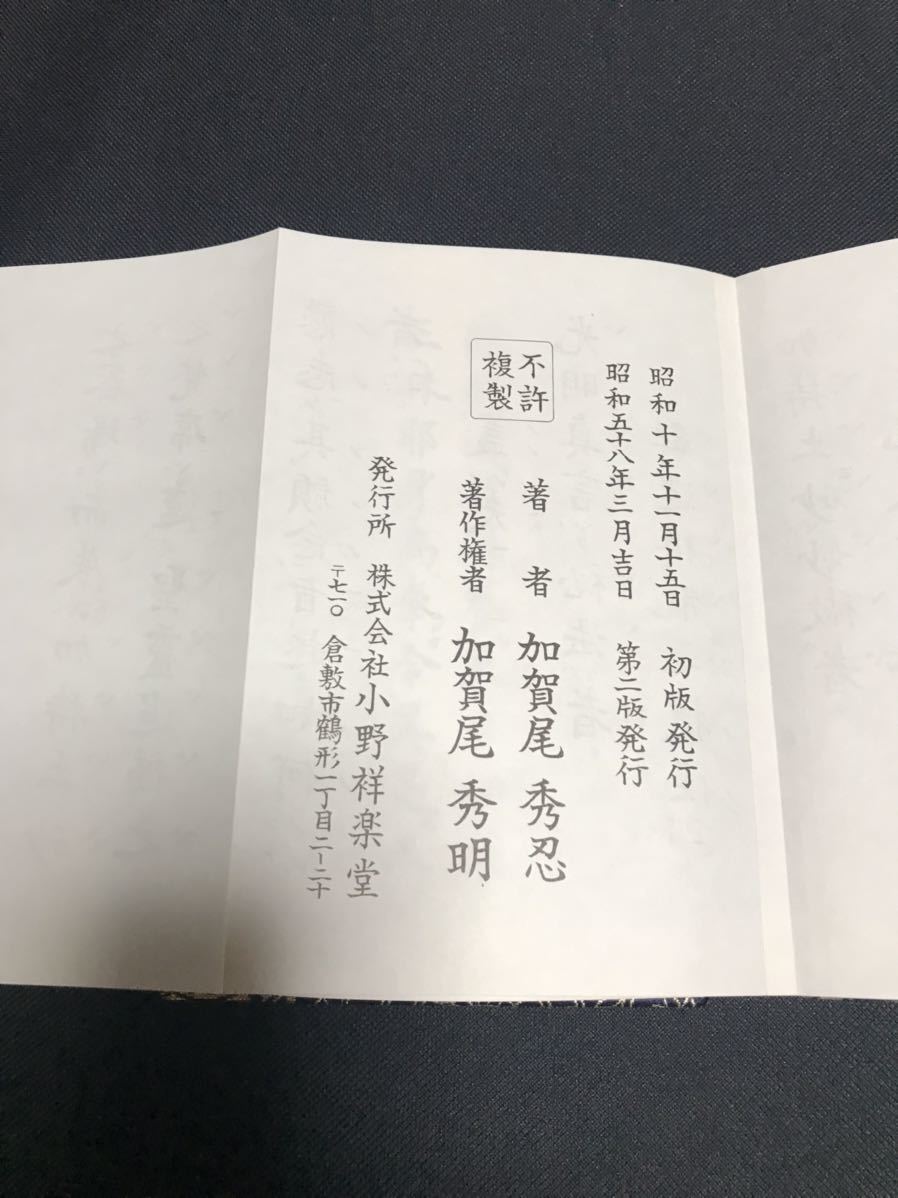 昭和十年十一月十五日 初版発行
昭和五十八年三月吉日 第二版発行
不許
複製
著者 加賀尾秀忍
著作権者 加賀尾秀明
発行所 株式会社小野祥楽堂
〒七一〇 倉敷市鶴形一丁目二ー二十